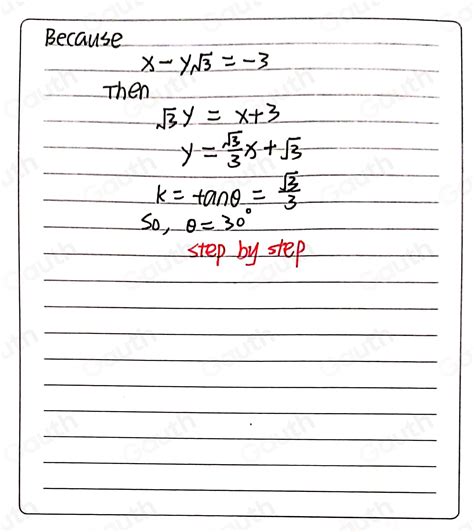 Because
x - y√3 = -3
Then
√3 y = x+3
y = √3/3 x + √3
k = tanθ = √3/3
So, θ = 30°
step by step
Gauth